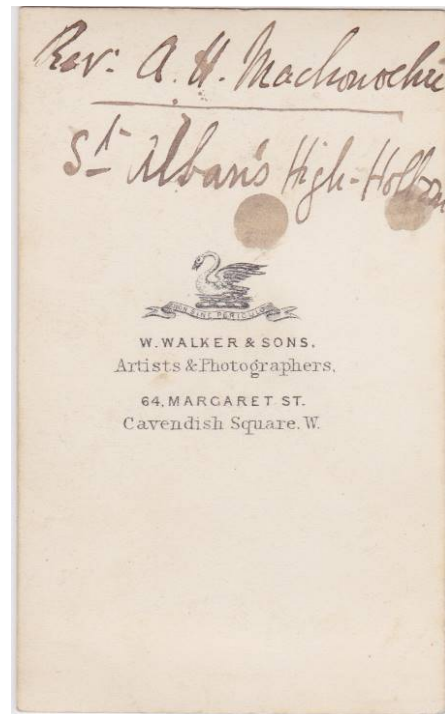 Rev: A. H. Machonochie
St Alban's High-Holborn
NON SINE PERICULO
W. WALKER & SONS.
Artists & Photographers,
64, MARGARET ST.
Cavendish Square. W.